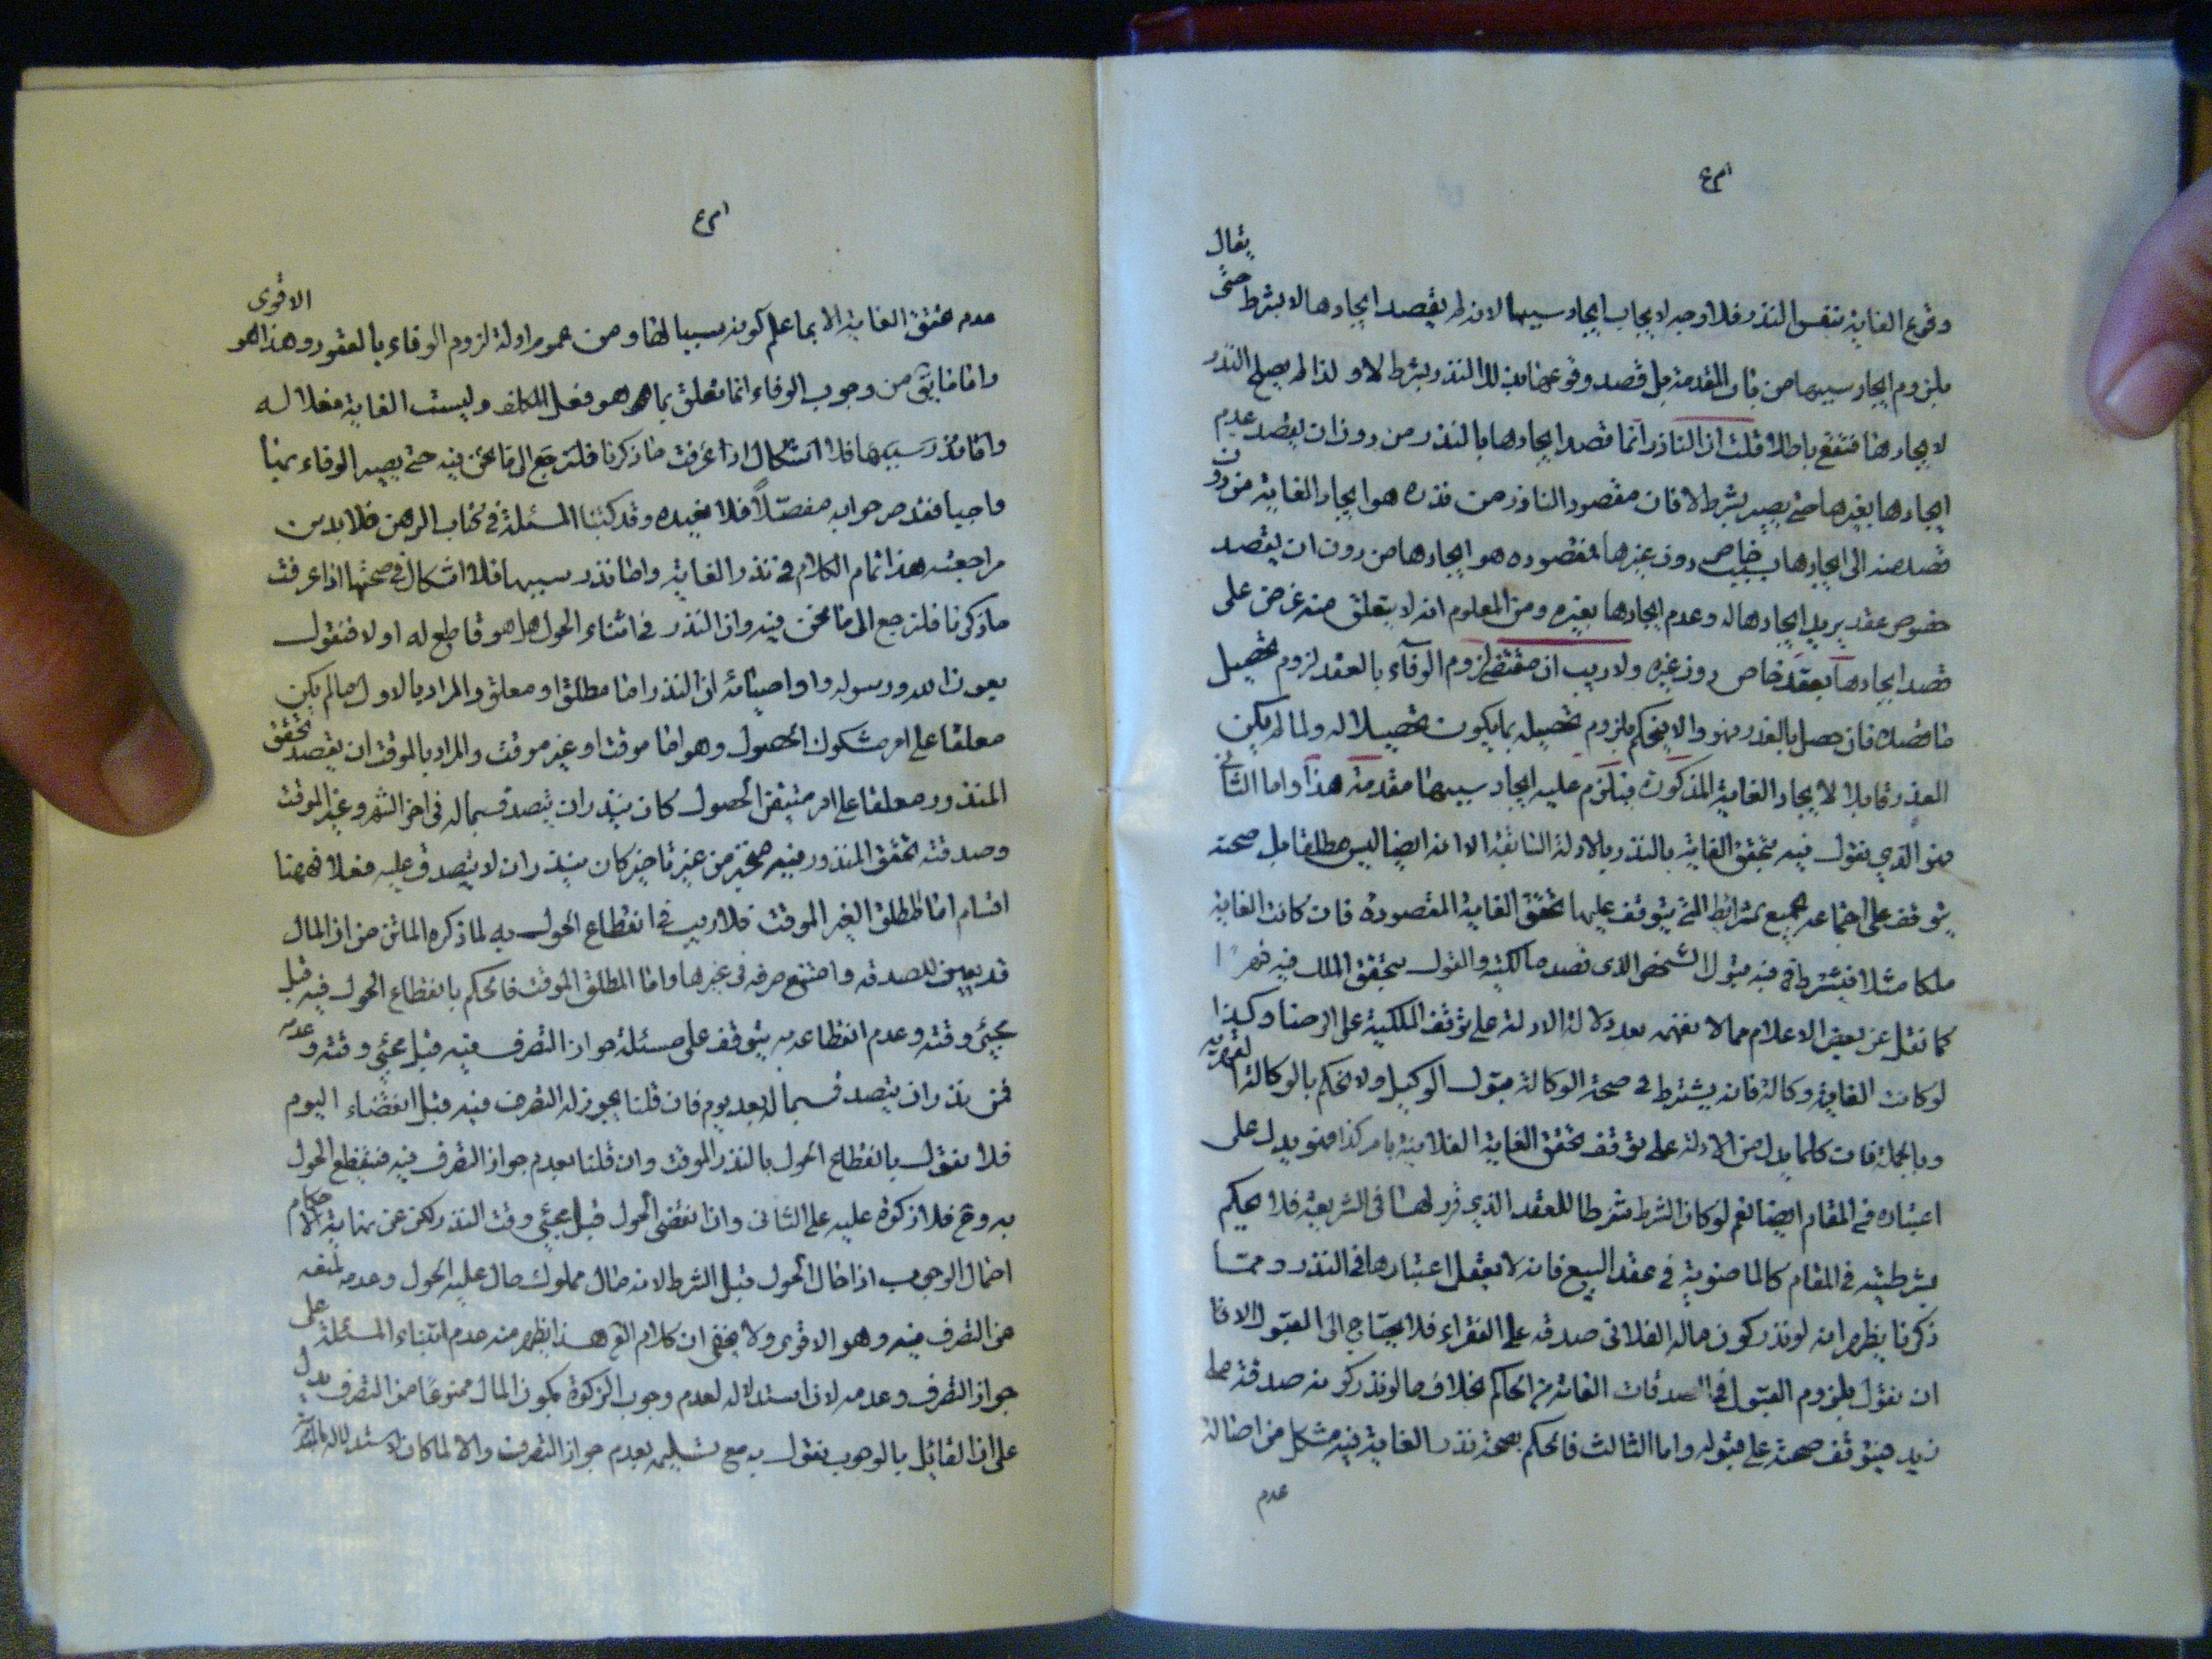 وقوع الغاية بنفس النذر فلا وجه لايجاب ايجاد سببها لانه لم يقصد ايجادها لا بشرط حتى يقال
بلزوم ايجاد سببها من باب المقدمة بل قصد وقوعها بذلك النذر بشرط لا ولذا لم يصلح النذر
لايجادها فتقع باطلا قلت ان الناذر انما قصد ايجادها بالنذر من دون ان يقصد عدم
ايجادها بغيرها حتى يصير بشرط لا فان مقصود الناذر من نذره هو ايجاد الغاية من دون
قصد منه الى ايجادها بسبب خاص دون غيرها فمقصوده هو ايجادها من دون ان يقصد
خصوص عقد يريد ايجادها له وعدم ايجادها بغيره ومن المعلوم انه لا يتعلق منه غرض على
قصد ايجادها بعقد خاص دون غيره ولا ريب ان مقتضى لزوم الوفاء بالعقد لزوم تحصيل
ما قصده فان حصل بالعقد فهو والا فيحكم بلزوم تحصيله بما يكون تحصيلا له ولما لم يكن
العقد قابلا لايجاد الغاية المذكورة فيلزم عليه ايجاد سببها مقدمة هذا واما الثاني
فهو الذي نقول فيه بتحقق الغاية بالنذر بالادلة السابقة الا انه ايضا ليس مطلقا بل صحته
يتوقف على اجتماعه لجميع شرايط التي يتوقف عليها تحقق الغاية المقصودة فان كانت الغاية
ملكا مثلا فيشترط فيه قبول الشخص الذي قصد مالكيته والقول بتحقق الملك فيه قهرا
كما نقل عن بعض الاعلام مما لا نفهمه بعد دلالة الادلة على توقف الملكية على الرضا وكذا
لو كانت الغاية وكالة فانه يشترط في صحة الوكالة قبول الوكيل ولا نحكم بالوكالة القهرية
وبالجملة فان كلما يدل من الادلة على توقف تحقق الغاية الفلانية بامر كذا فهو يدل على
اعتباره في المقام ايضا نعم لو كان الشرط شرطا للعقد الذي قرر لها في الشريعة فلا يحكم
بشرطيته في المقام كالماضوية في عقد البيع فانه لا يعقل اعتبارها في النذر ومما
ذكرنا يظهر انه لو نذر كون ماله الفلاني صدقة على الفقراء فلا يحتاج الى القبول الا
ان نقول بلزوم القبول في الصدقات العامة من الحاكم بخلاف ما لو نذر كونه صدقة على
زيد فيتوقف صحته على قبوله واما الثالث فالحكم بصحة نذر الغاية فيه مشكل من اصالة
عدم
عدم تحقق الغاية الا بما علم كونه سببا لها ومن عموم ادلة لزوم الوفاء بالعقود وهذا هو الاقوى
واما ما بقي من وجوب الوفاء انما تعلق بما هو فعل المكلف وليست الغاية فعلا له
واما نذر سببها فلا اشكال اذا عرفت ما ذكرنا فلنرجع الى ما نحن فيه حتى يصير الوفاء بها
واجبا فقد مر جوابه مفصّلاً فلا نعيده وقد كتبنا المسئلة في كتاب الرهن فلا بد من
مراجعته هذا تمام الكلام في نذر الغاية واما نذر سببها فلا اشكال في صحتها اذا عرفت
ما ذكرنا فلنرجع الى ما نحن فيه وان النذر في اثناء الحول هل هو قاطع له او لا فنقول
بعون الله ورسوله واوصيائه ان النذر اما مطلق او معلق والمراد بالاول ما لم يكن
معلقا على امر مشكوك الحصول وهو اما موقت او غير موقت والمراد بالموقت ان يقصد تحقق
المنذور معلقا على امر متيقن الحصول كان ينذر ان يتصدق بماله في اخر الشهر وغير الموقت
وصدقته تحقق المنذور فيه من غير تاخير كان ينذر ان لا يتصدق عليه فعلا فههنا
اقسام اما المطلق الغير الموقت فلا ريب في انقطاع الحول به لما ذكره الماتن من ان المال
قد يعين للصدقة وامتنع صرفه في غيرها واما المطلق الموقت فالحكم بانقطاع الحول فيه قبل
مجيئ وقته وعدم انقطاعه به يتوقف على مسئلة جواز التصرف فيه قبل مجيئ وقته وعدمه
فمن نذر ان يتصدق بماله بعد يوم فان قلنا يجوز له التصرف فيه قبل انقضاء اليوم
فلا نقول بانقطاع الحول بالنذر الموقت وان قلنا بعدم جواز التصرف فيه فينقطع الحول
به وح فلا زكوة عليه على الثاني وان انقضى الحول قبل مجيئ وقت النذر لكن عن نهاية الاحكام
احتمال الوجوب اذا حال الحول قبل الشرط لانه مال مملوك حال عليه الحول وعدمه لمنعه
من التصرف فيه وهو الاقوى ولا يخفى ان كلام هذا يظهر منه عدم ابتناء المسئلة على
جواز التصرف وعدمه لان استدلاله لعدم وجوب الزكوة بكون المال ممنوعا من التصرف يدل
على ان القايل بالوجوب يقول به مع تسليمه بعدم جواز التصرف والا لما كان استدلاله